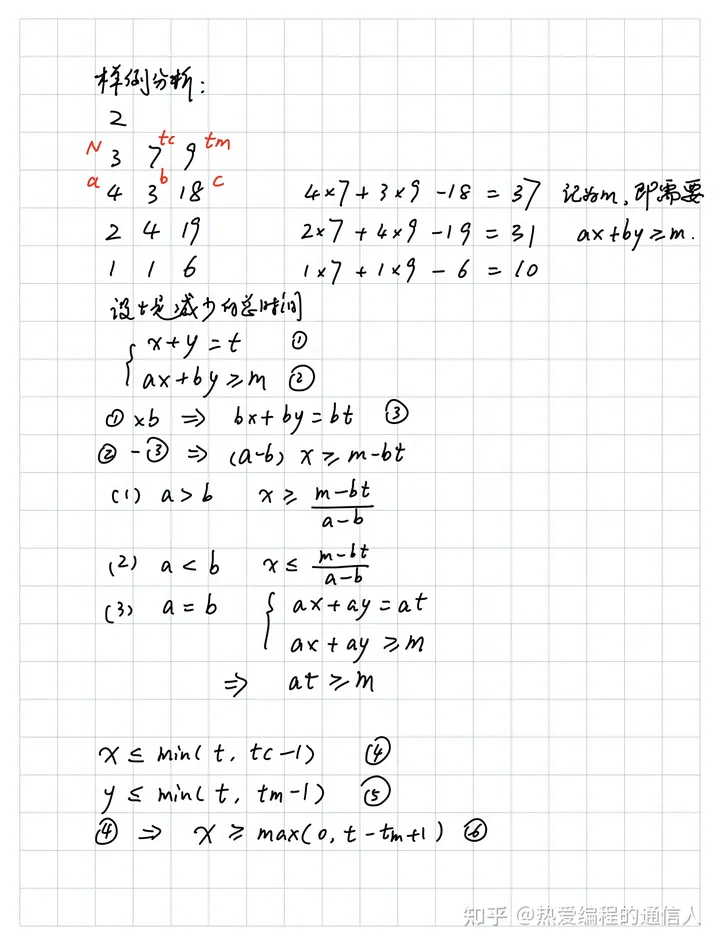 样例分析:
2
N 3 7 tc 9 tm
a 4 3 b 18 c 4×7+3×9-18=37 记为m,即需要
2 4 19 2×7+4×9-19=31 ax+by≥m.
1 1 6 1×7+1×9-6=10
设t是减少的总时间
x+y=t ①
ax+by≥m ②
①×b ⇒ bx+by=bt ③
②-③ ⇒ (a-b)x≥m-bt
(1) a>b x≥ (m-bt)/(a-b)
(2) a<b x≤ (m-bt)/(a-b)
(3) a=b { ax+ay=at
ax+ay≥m
⇒ at≥m
x≤min(t, tc-1) ④
y≤min(t, tm-1) ⑤
④ ⇒ x≥max(0, t-tm+1) ⑥
知乎 @热爱编程的通信人